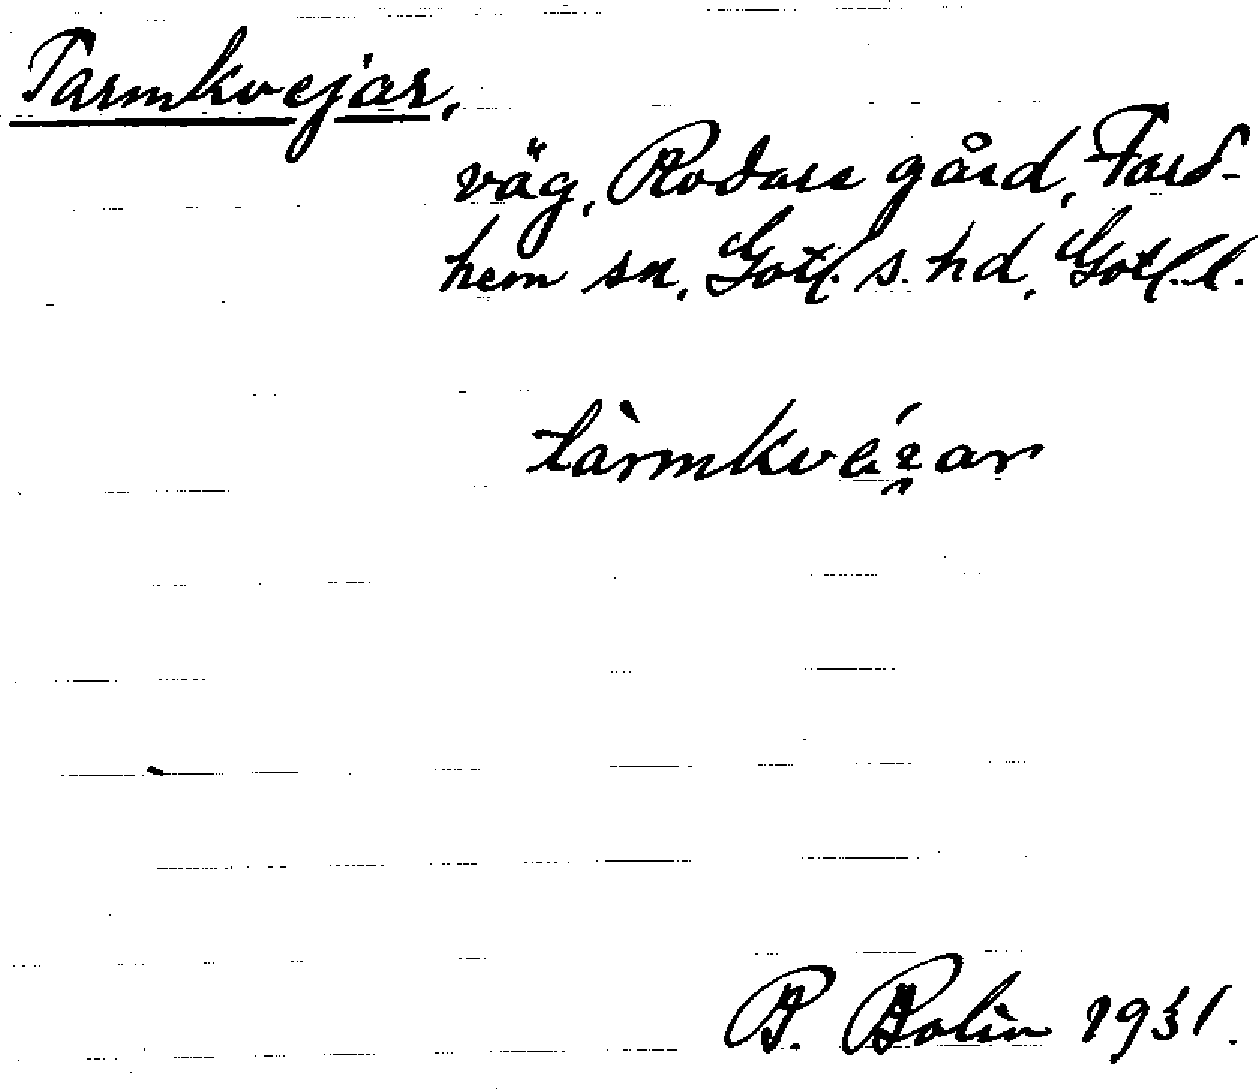 Tarmkvejar,
väg, Rodare gård, Fard-
hem sn, Gotl. s. hd, Gotl. l.
tàrmkvéi̯ar
B. Bolin 1931.